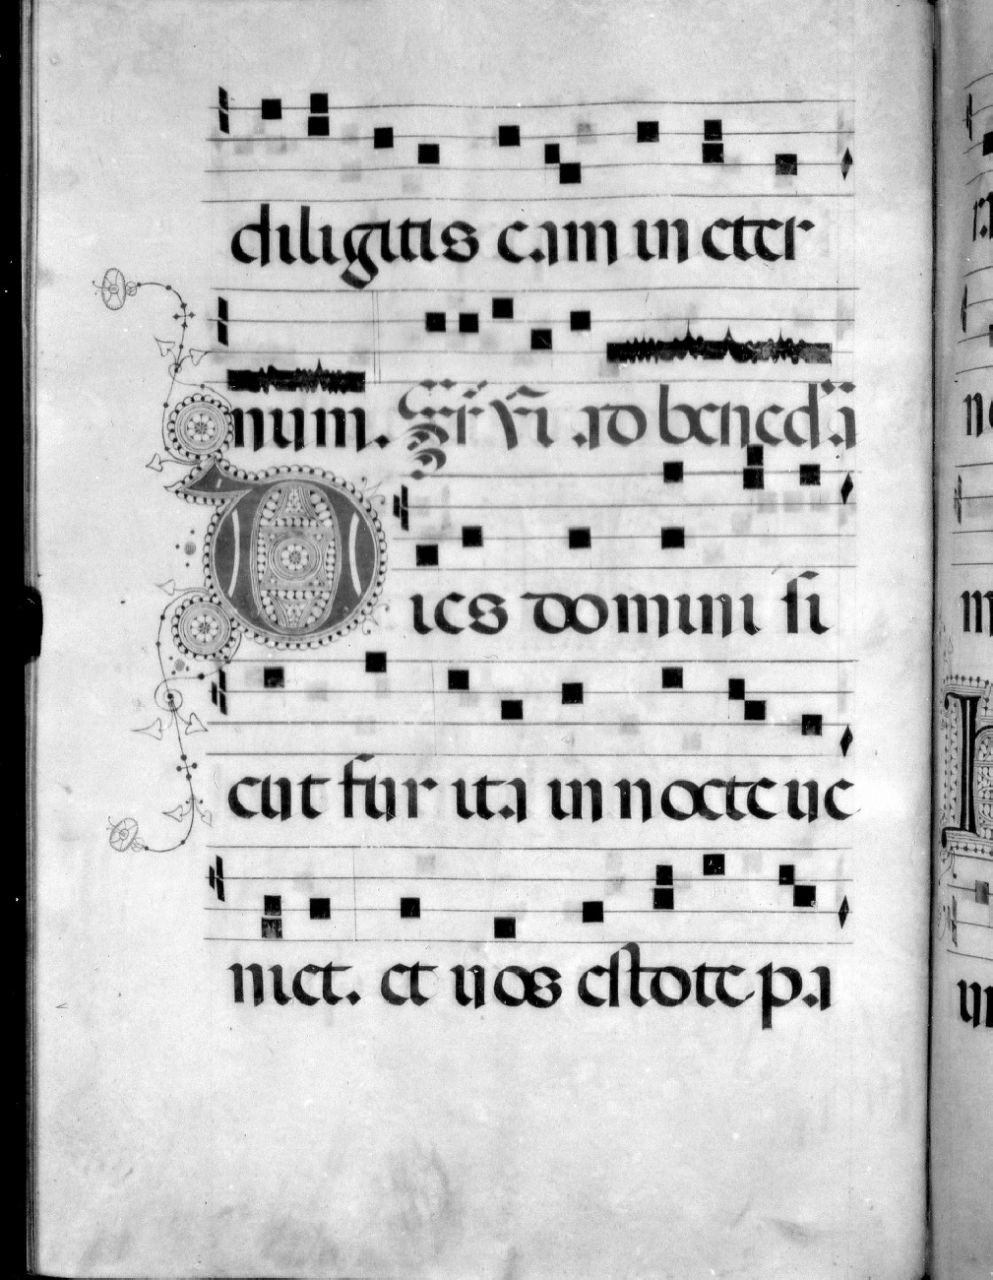 diligitis eam in eter
num. ad bened
Dies domini si
cut fur ita in nocte ve
niet. et vos estote pa